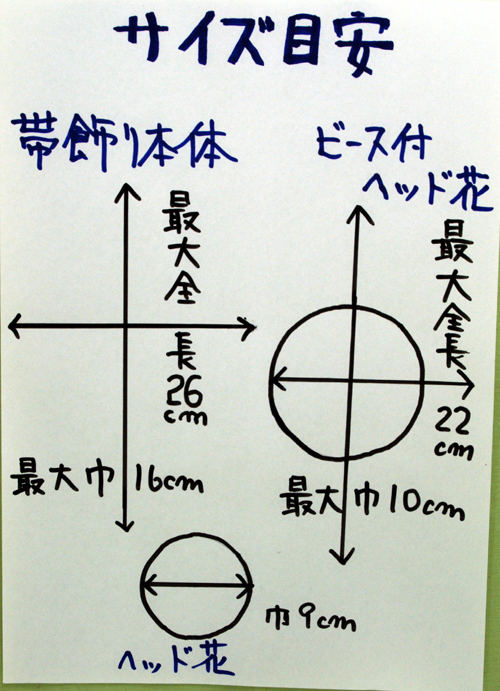 サイズ目安
帯飾り本体
最大全長
26
cm
最大巾16cm
ビース付
ヘッド花
最大全長
22
cm
最大巾10cm
巾9cm
ヘッド花